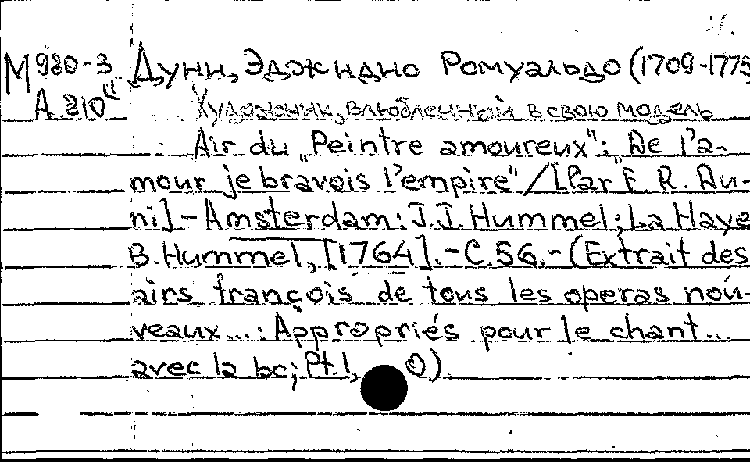 М 980-3 Дуни, Эджидио Ромуальдо (1709-1775
А 210" Художник, влюбленный в свою модель
Air du „Peintre amoureux": „De l'a-
mour je bravois l'empire" / [Par E. R. Du-
ni]. - Amsterdam: J.J. Hummel; La Haye
B. Hummel, [1764]. - C. 56. - (Extrait des
airs françois de tous les operas nou-
veaux...: Appropriés pour le chant...
avec la bc; Pt 1,